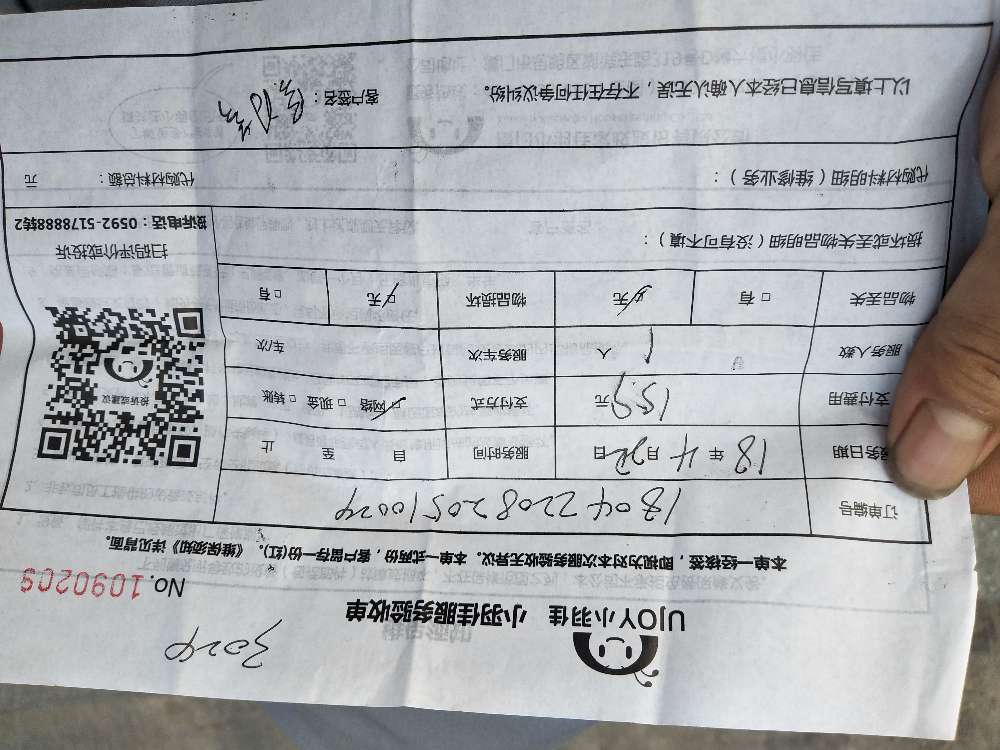 3024
UJOY小羽佳 小羽佳服务验收单
No.1090209
本单一经核签，即视为对本次服务验收无异议。本单一式两份，客户留存一份(红)。《维保须知》详见背面。
订单编号 1804220820510024
服务日期 18年4月22日 服务时间 自 至 止
支付费用 159元 支付方式 ☑网络 □现金 □转账
服务人数 1人 服务车次 车/次
物品丢失 □有 ☑无 物品损坏 ☑无 □有
投诉或建议
扫码评价或投诉
投诉电话：0592-5178888转2
损坏或丢失物品明细（没有可不填）：
代购材料明细（维修业务）： 代购材料总额： 元
以上填写信息已经本人确认无误，不存在任何争议纠纷。 客户签名：